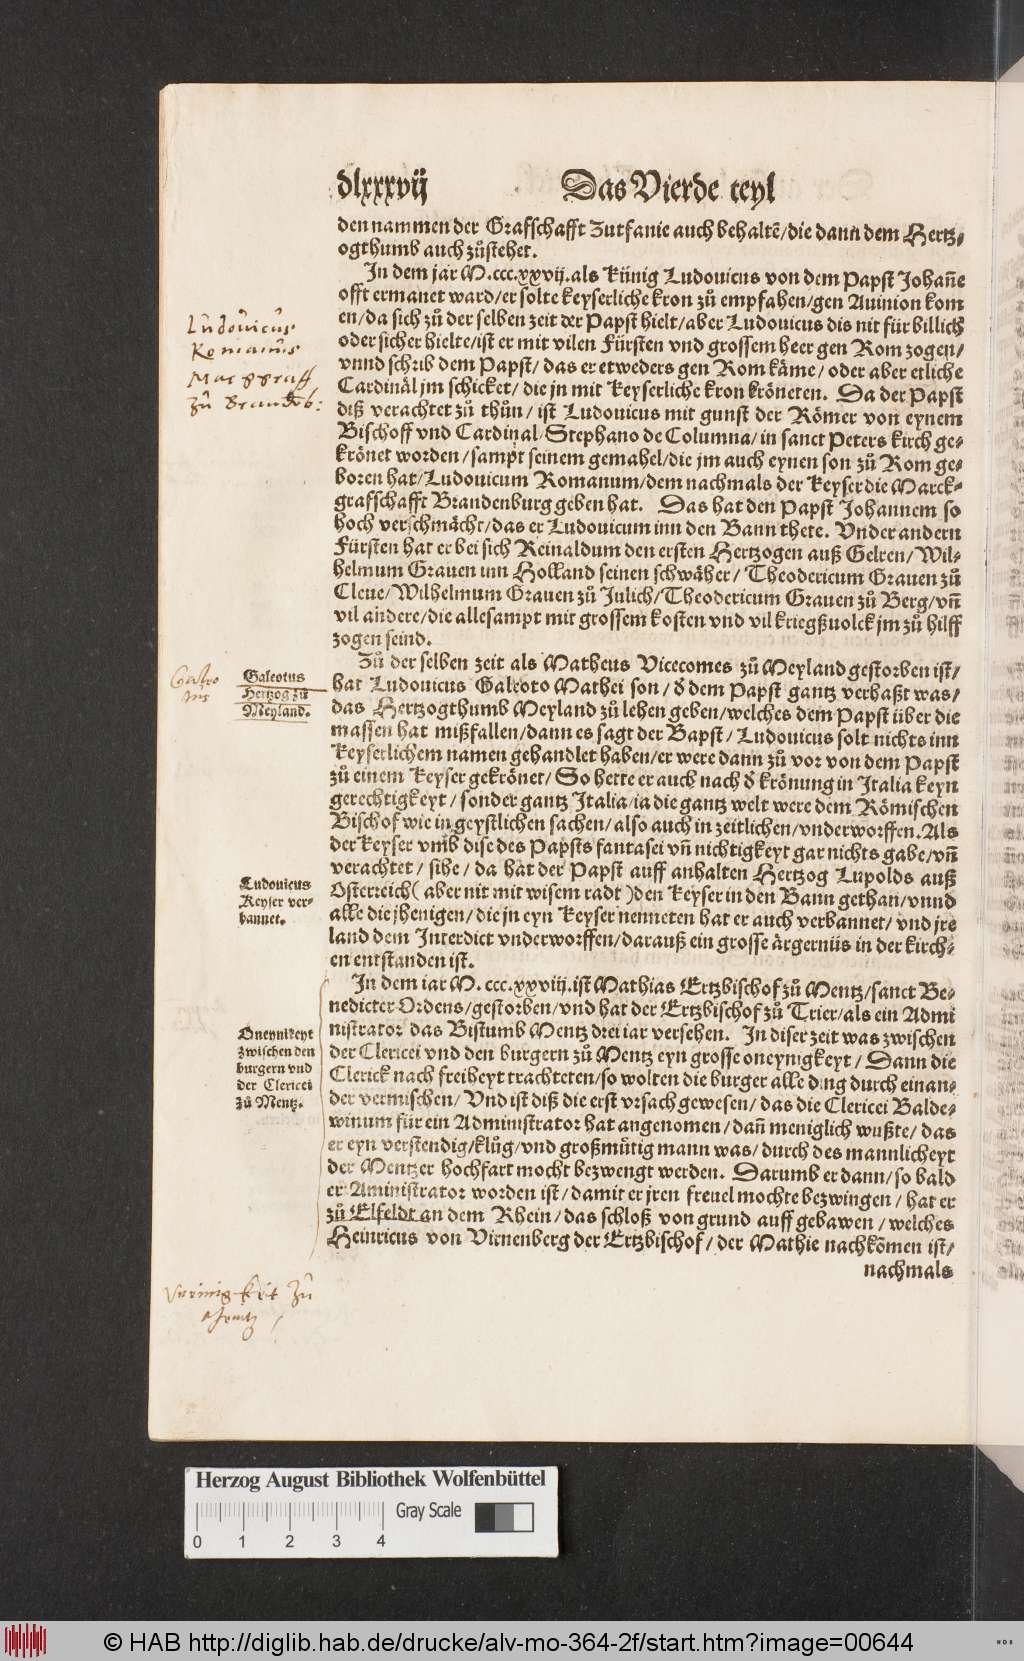 dlxxxvij Das Vierde teyl
den nammen der Grafschafft Zutfanie auch behaltẽ/die dann dem Hertz-
ogthumb auch zůstehet.
In dem jar M.ccc.xxvij.als Künig Ludouicus von dem Papst Johañe
offt ermanet ward/er solte keyserliche kron zů empfahen/gen Auinion kom
en/da sich zů der selben zeit der Papst hielt/aber Ludouicus dis nit für billich
oder sicher hielte/ist er mit vilen Fürsten vnd grossem heer gen Rom zogen/
vnnd schrib dem Papst/das er etweders gen Rom käme/oder aber etliche
Cardinäl jm schicket/die jn mit Keyserliche kron kröneten. Da der Papst
diß verachtet zů thůn/ist Ludouicus mit gunst der Römer von eynem
Bischoff vnd Cardinal Stephano de Columna/in sanct Peters kirch ge-
krönet worden/sampt seinem gemahel/die jm auch eynen son zů Rom ge-
boren hat/Ludouicum Romanum/dem nachmals der Keyser die Marck-
grafschafft Brandenburg geben hat. Das hat den Papst Johannem so
hoch verschmächt/das er Ludouicum inn den Bann thete. Vnder andern
Fürsten hat er bei sich Reinaldum den ersten Hertzogen auß Gelren/Wil-
helmum Grauen inn Holland seinen schwäher/Theodericum Grauen zů
Cleue/Wilhelmum Grauen zů Julich/Theodericum Grauen zů Berg/vñ
vil andere/die allesampt mit grossem kosten vnd vil kriegßuolck jm zů hilff
zogen seind.
Zů der selben zeit als Matheus Vicecomes zů Meyland gestorben ist/
hat Ludouicus Galeoto Mathei son/d̕ dem Papst gantz verhaßt was/
das Hertzogthumb Meyland zů lehen geben/welches dem Papst über die
massen hat mißfallen/dann es sagt der Bapst/Ludouicus solt nichts inn
Keyserlichem namen gehandlet haben/er were dann zů vor von dem Papst
zů einem Keyser gekrönet/So hette er auch nach d̕ krönung in Italia keyn
gerechtigkeyt/sonder gantz Italia/ia die gantz welt were dem Römischen
Bischof wie in geystlichen sachen/also auch in zeitlichen/vnderworffen.Als
der Keyser vmb dise des Papsts fantasei vñ nichtigkeyt gar nichts gabe/vñ
verachtet/sihe/da hat der Papst auff anhalten Hertzog Lupolds auß
Osterreich(aber nit mit wisem radt)den Keyser in den Bann gethan/vnnd
alle die jhenigen/die jn eyn Keyser nenneten hat er auch verbannet/vnd jre
land dem Interdict vnderworffen/darauß ein grosse ärgernüs in der kirch-
en entstanden ist.
In dem iar M.ccc.xxviij.ist Mathias Ertzbischof zů Mentz/sanct Be-
nedicter Ordens/gestorben/vnd hat der Ertzbischof zů Trier/als ein Admi
nistrator das Bistumb Mentz drei iar versehen. In diser zeit was zwischen
der Clericei vnd den burgern zů Mentz eyn grosse oneynigkeyt/Dann die
Clerick nach freiheyt trachteten/so wolten die burger alle ding durch einan-
der vermischen/Vnd ist diß die erst vrsach gewesen/das die Clericei Balde-
winum für ein Administrator hat angenomen/dañ meniglich wußte/das
er eyn verstendig/klůg/vnd großmütig mann was/durch des mannlicheyt
der Mentzer hochfart mocht bezwengt werden. Darumb er dann/so bald
er Aministrator worden ist/damit er jren freuel mochte bezwingen/hat er
zů Elfeldt an dem Rhein/das schloß von grund auff gebawen/welches
Heinricus von Virnenberg der Ertzbischof/der Mathie nachkõmen ist/
nachmals
Ludouicus
Romanus
Marggraff
zů Brandeb:
Galeotus
Hertzog zů
Meyland.
Ludouicus
Keyser ver-
bannet.
Oneynikeyt
zwischen den
burgern vnd
der Clericei
zů Mentz.
Vneinigkeit Zů
Mentz
Herzog August Bibliothek Wolfenbüttel
Gray Scale
0 1 2 3 4
© HAB http://diglib.hab.de/drucke/alv-mo-364-2f/start.htm?image=00644